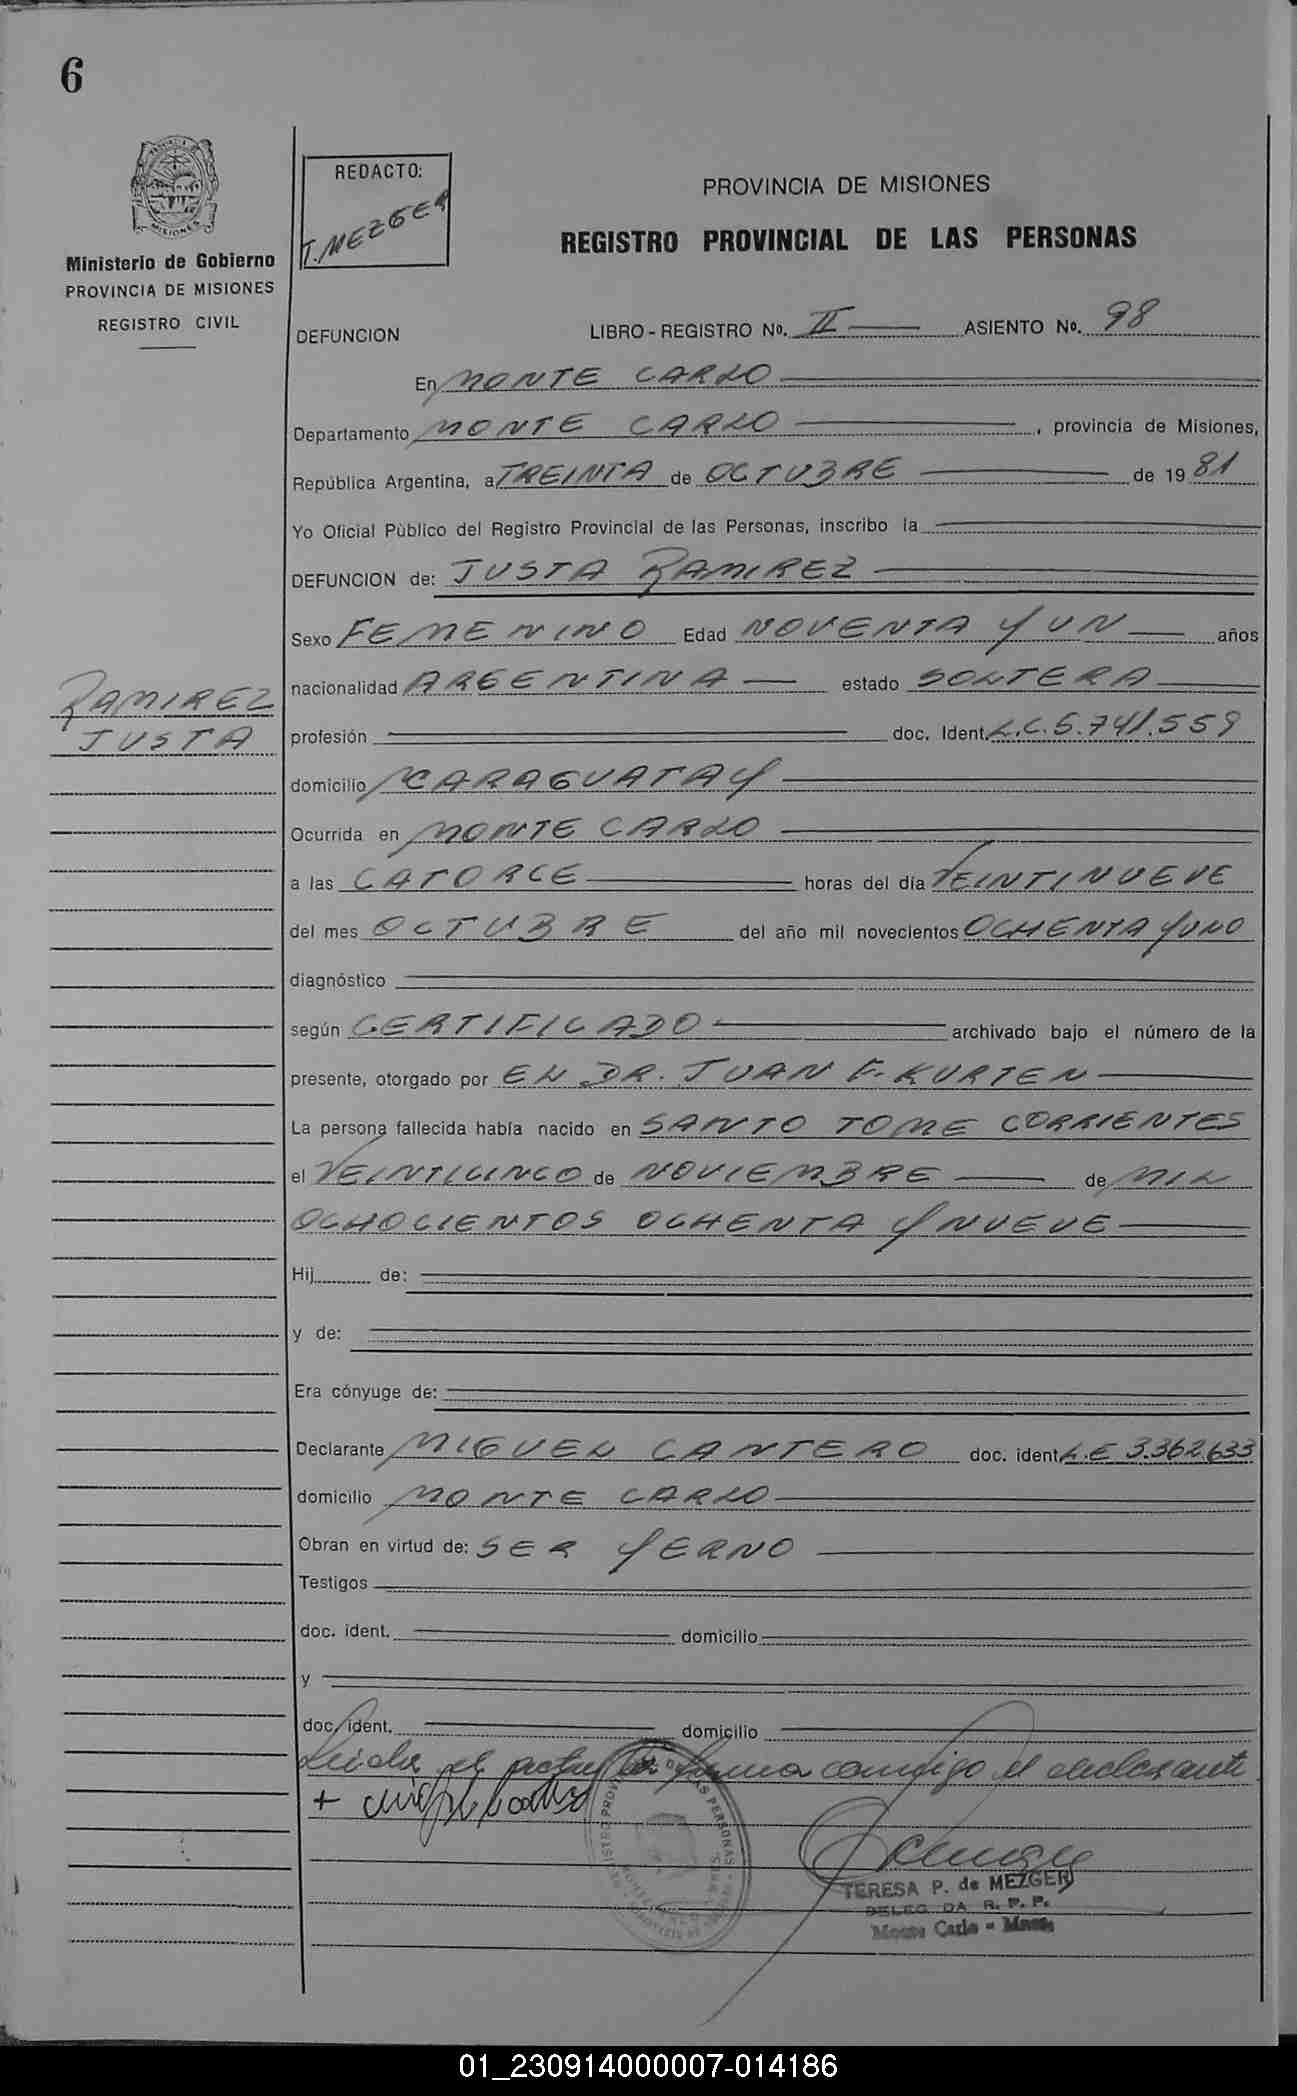 6
REDACTO:
T. MEZGER
PROVINCIA DE MISIONES
REGISTRO PROVINCIAL DE LAS PERSONAS
MISIONES
Ministerio de Gobierno
PROVINCIA DE MISIONES
REGISTRO CIVIL
DEFUNCION LIBRO - REGISTRO No. II ASIENTO No. 98
En MONTE CARLO
Departamento MONTE CARLO, provincia de Misiones,
República Argentina, a TREINTA de OCTUBRE de 1981
Yo Oficial Público del Registro Provincial de las Personas, inscribo la
DEFUNCION de: JUSTA RAMIREZ
Sexo FEMENINO Edad NOVENTA Y UN años
nacionalidad ARGENTINA estado SOLTERA
RAMIREZ
JUSTA
profesión doc. Ident. L.C. 5.741.559
domicilio CARAGUATAY
Ocurrida en MONTE CARLO
a las CATORCE horas del día VEINTINUEVE
del mes OCTUBRE del año mil novecientos OCHENTA Y UNO
diagnóstico
según CERTIFICADO archivado bajo el número de la
presente, otorgado por EL DR. JUAN F. KURTEN
La persona fallecida había nacido en SANTO TOME CORRIENTES
el VEINTICINCO de NOVIEMBRE de MIL
OCHOCIENTOS OCHENTA Y NUEVE
Hij de:
y de:
Era cónyuge de:
Declarante MIGUEL CANTERO doc. ident. L.E 3.362.633
domicilio MONTE CARLO
Obran en virtud de: SER YERNO
Testigos
doc. ident. domicilio
y
doc. ident. domicilio
Leida el acta la firma conmigo el declarante
+
TERESA P. de MEZGER
DELEGADA R. P. P.
Monte Carlo - Mnes
01_230914000007-014186